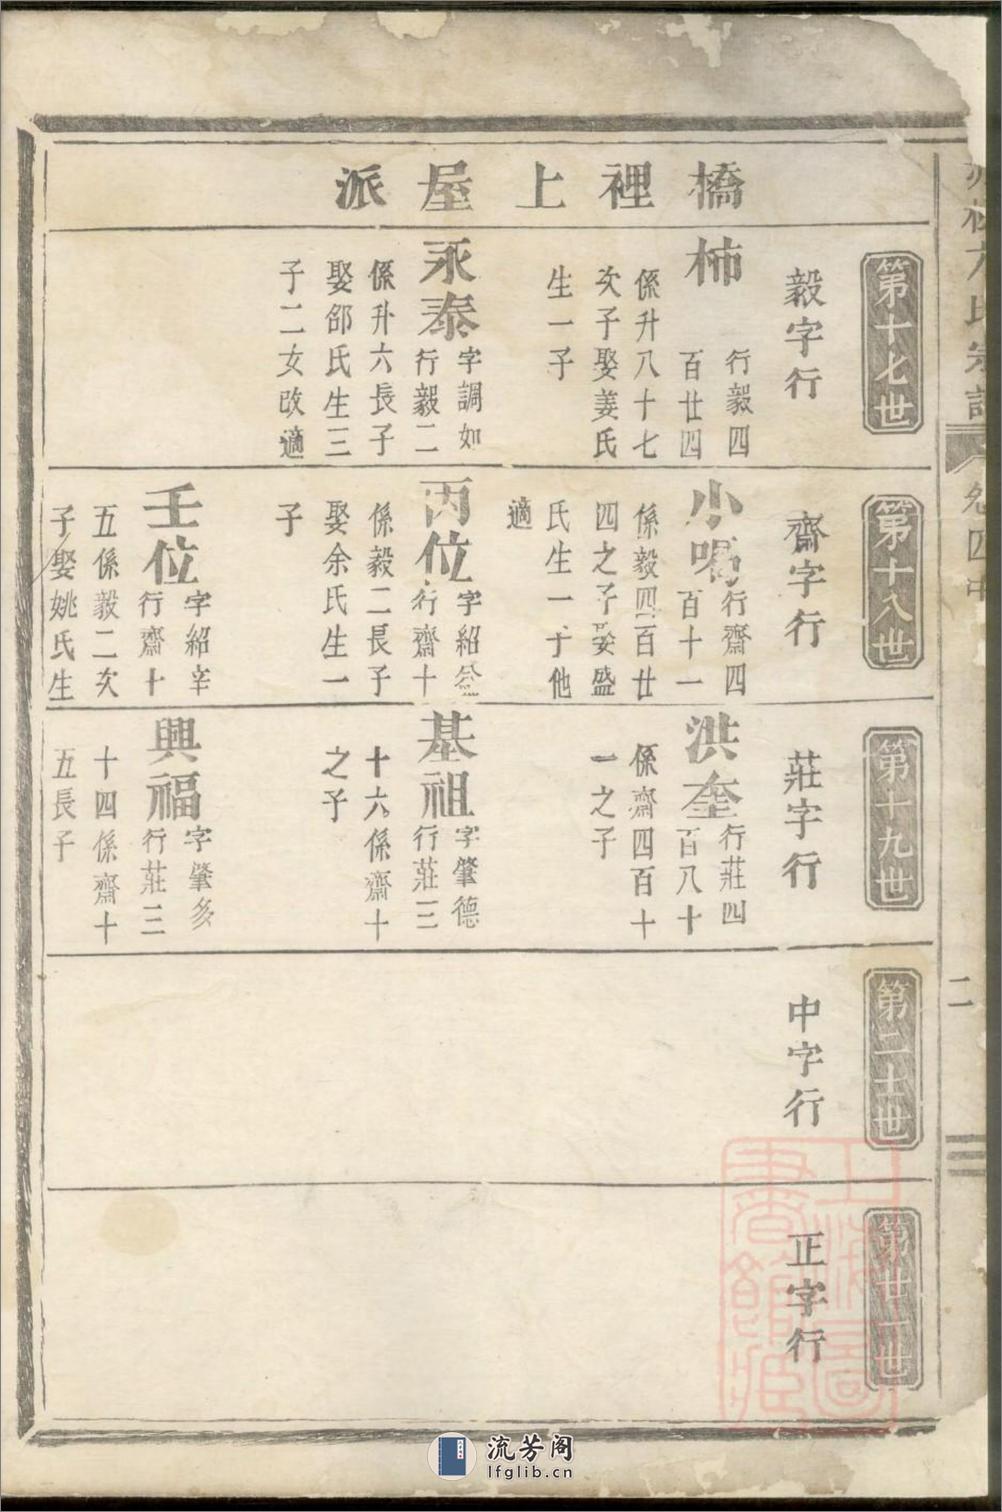 橋裡上屋派
第十七世
毅字行
柿
行毅四
百廿四
係升八十七
次子娶姜氏
生一子
永泰
字調如
行毅二
係升六長子
娶邵氏生三
子二女改適
第十八世
齋字行
小喝
行齋四
百十一
係毅四百廿
四之子娶盛
氏生一子他
適
丙位
字紹
行齋十
係毅二長子
娶余氏生一
子
壬位
字紹辛
行齋十
五係毅二次
子娶姚氏生
第十九世
莊字行
洪奎
行莊四
百八十
係齋四百十
一之子
基祖
字肇德
行莊三
十六係齋十
之子
興福
字肇多
行莊三
十四係齋十
五長子
第二十世
中字行
第廿一世
正字行
氏宗譜
卷四中
二
上海圖書館藏
流芳阁
lfglib.cn